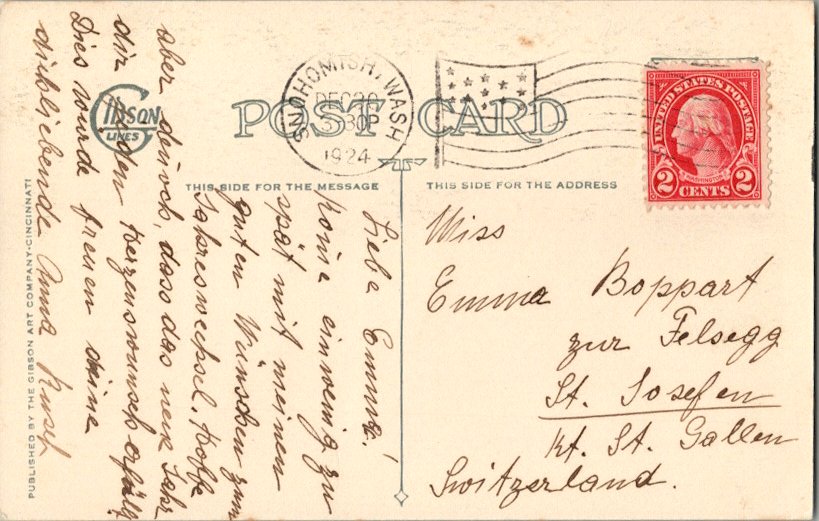 POST CARD
SNOHOMISH, WASH
DEC 20
3 30P
1924
UNITED STATES POSTAGE
WASHINGTON
2 CENTS 2
GIBSON
LINES
THIS SIDE FOR THE MESSAGE
THIS SIDE FOR THE ADDRESS
Liebe Emma!
Kome ein wenig zu
spät mit meinen
guten Wünschen zum
Jahreswechsel. Hoffe
aber doch, dass das neue Jahr
dir den Herzenswunsch erfüllt
Dies würde freuen deine
dichliebende Anna
Miss
Emma Boppart
zur Felsegg
St. Josefen
Kt. St. Gallen
Switzerland.
PUBLISHED BY THE GIBSON ART COMPANY-CINCINNATI